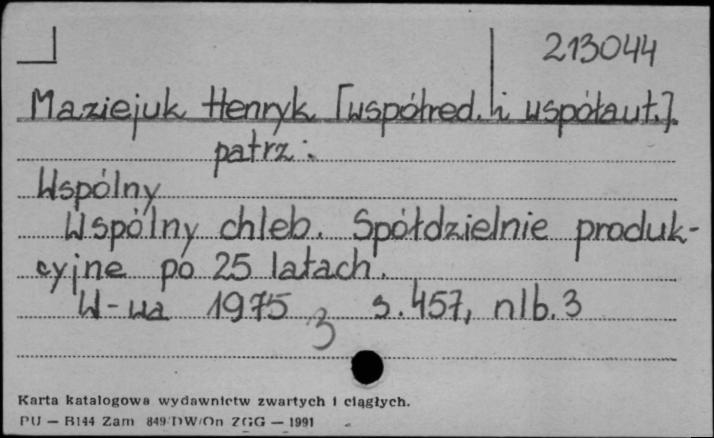 213044
Maziejuk Henryk [współred. i współaut.].
patrz:
Wspólny
Wspólny chleb. Spółdzielnie produk-
cyjne po 25 latach.
W-wa 1975 s. 457, nlb. 3
3
Karta katalogowa wydawnictw zwartych i ciągłych.
PU — B144 Zam 849/DW/On ZGG — 1991